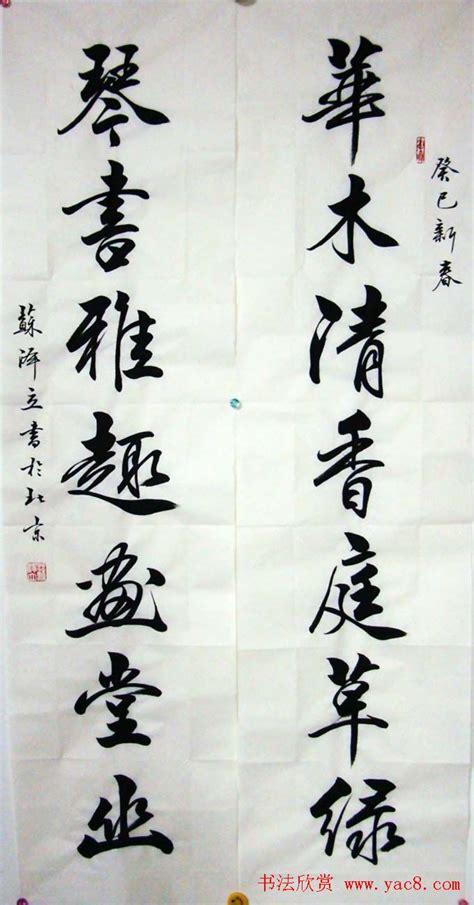 癸巳新春
華木清香庭草绿
琴書雅趣畫堂幽
蘇泽立書於北京
书法欣赏 www.yac8.com